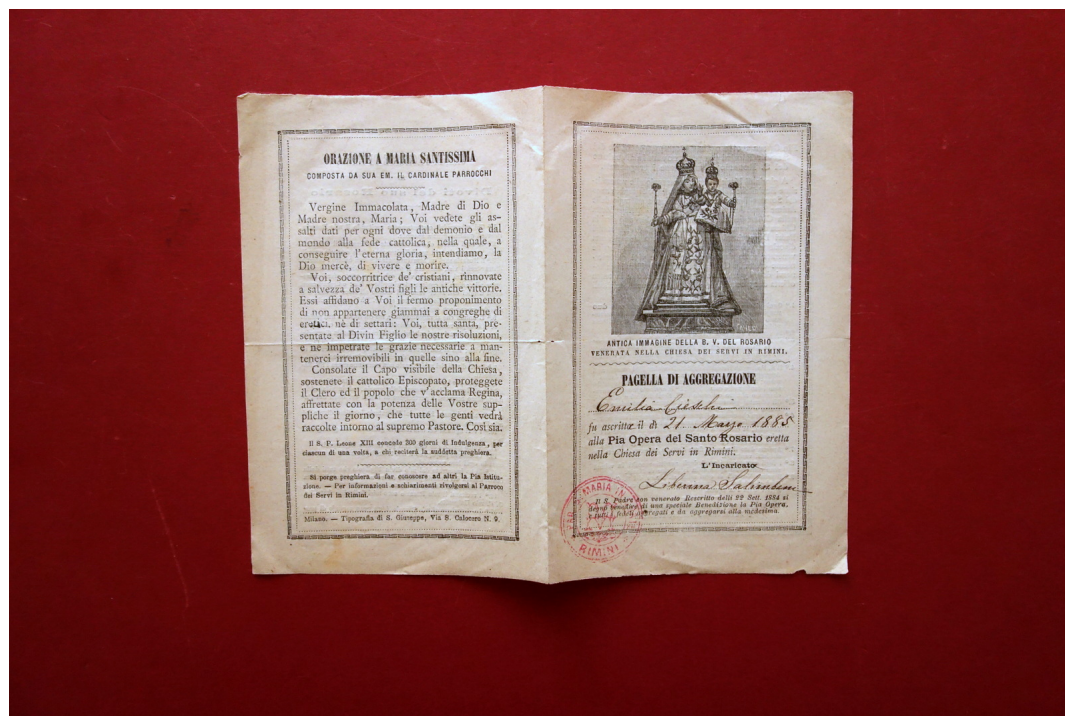 ORAZIONE A MARIA SANTISSIMA
COMPOSTA DA SUA EM. IL CARDINALE PARROCCHI
Vergine Immacolata, Madre di Dio e
Madre nostra, Maria; Voi vedete gli as-
salti dati per ogni dove dal demonio e dal
mondo alla fede cattolica, nella quale, a
conseguire l'eterna gloria, intendiamo, la
Dio mercè, di vivere e morire.
Voi, soccorritrice de' cristiani, rinnovate
a salvezza de' Vostri figli le antiche vittorie.
Essi affidano a Voi il fermo proponimento
di non appartenere giammai a congreghe di
eretici, nè di settari: Voi, tutta santa, pre-
sentate al Divin Figlio le nostre risoluzioni,
e ne impetrate le grazie necessarie a man-
tenerci irremovibili in quelle sino alla fine.
Consolate il Capo visibile della Chiesa,
sostenete il cattolico Episcopato, proteggete
il Clero ed il popolo che v'acclama Regina,
affrettate con la potenza delle Vostre sup-
pliche il giorno, che tutte le genti vedrà
raccolte intorno al supremo Pastore. Così sia.
Il S. P. Leone XIII concede 300 giorni di Indulgenza, per
ciascun di una volta, a chi reciterà la suddetta preghiera.
Si porge preghiera di far conoscere ad altri la Pia Istitu-
zione. — Per informazioni e schiarimenti rivolgersi al Parroco
dei Servi in Rimini.
Milano. — Tipografia di S. Giuseppe, Via S. Calocero N. 9.
ANTICA IMMAGINE DELLA B. V. DEL ROSARIO
VENERATA NELLA CHIESA DEI SERVI IN RIMINI.
PAGELLA DI AGGREGAZIONE
Emilia
fu ascritta il dì 21 Marzo 1885
alla Pia Opera del Santo Rosario eretta
nella Chiesa dei Servi in Rimini.
L'Incaricato
Il S. Padre con venerato Rescritto delli 22 Sett. 1884 si
degnò benedire di una speciale Benedizione la Pia Opera,
e tutti i fedeli aggregati e da aggregarsi alla medesima.
MARIA IN
RIMINI